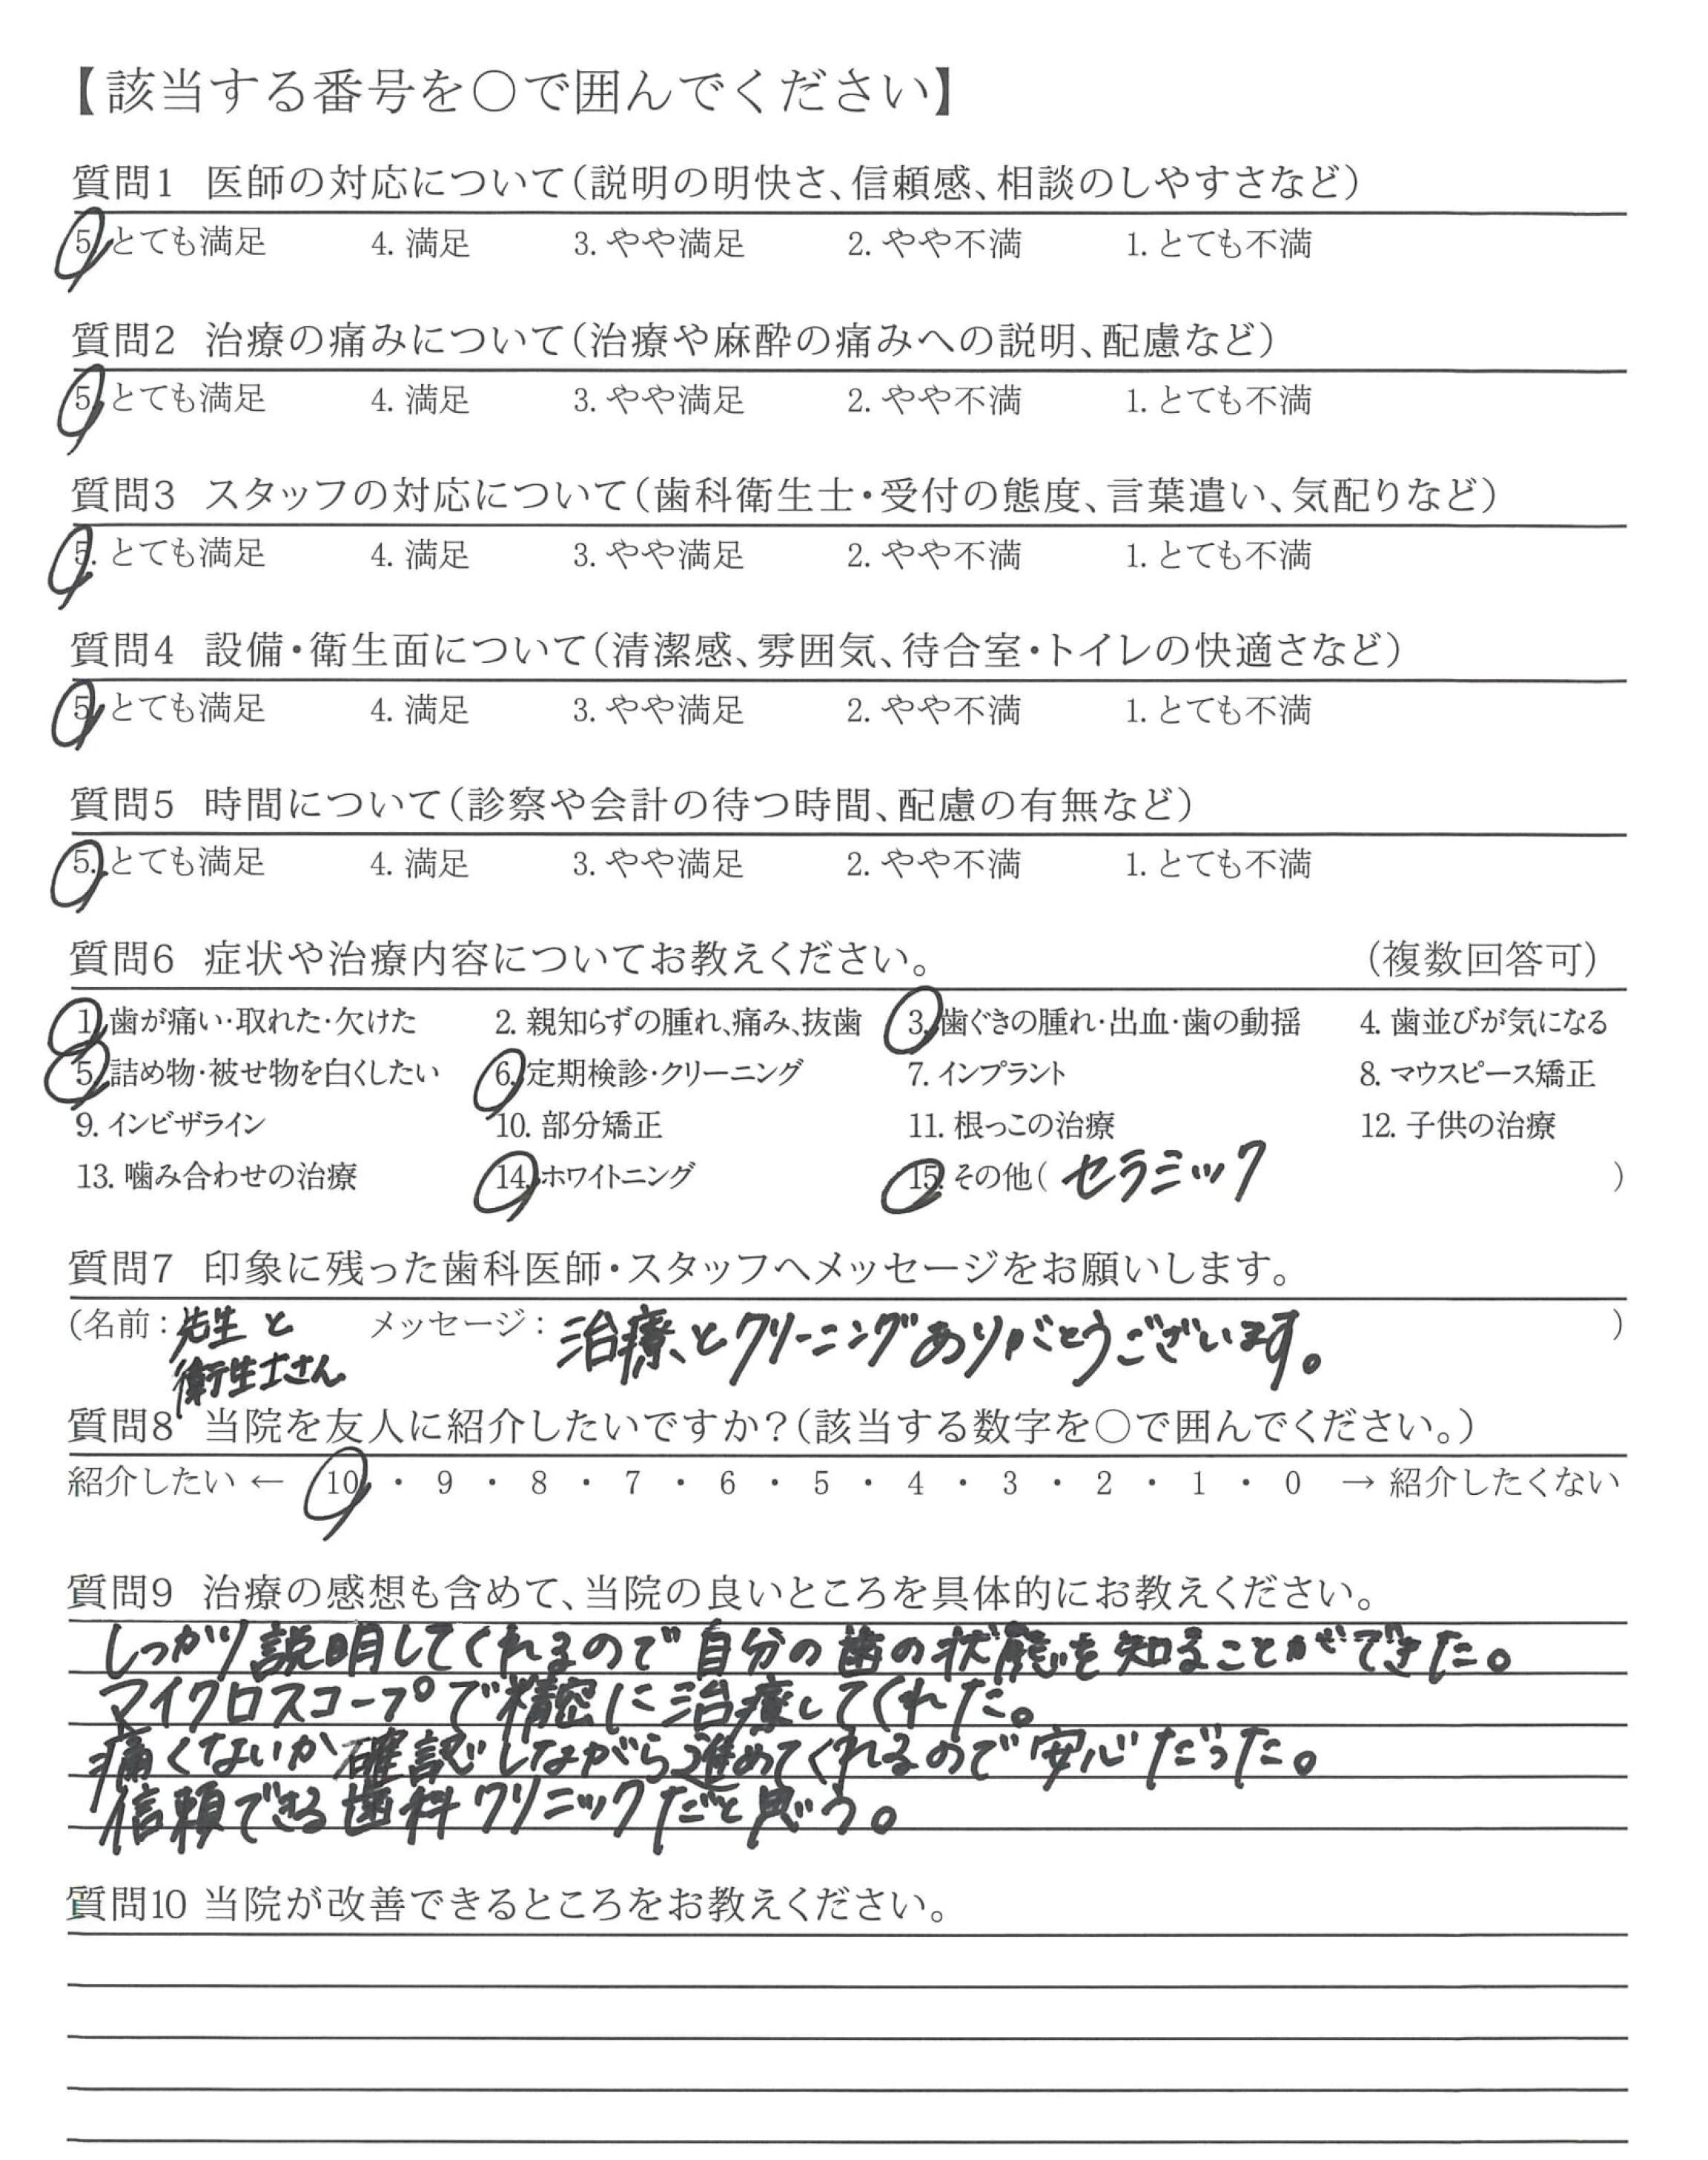 【該当する番号を○で囲んでください】
質問1 医師の対応について(説明の明快さ、信頼感、相談のしやすさなど)
5. とても満足 4. 満足 3. やや満足 2. やや不満 1. とても不満
質問2 治療の痛みについて(治療や麻酔の痛みへの説明、配慮など)
5. とても満足 4. 満足 3. やや満足 2. やや不満 1. とても不満
質問3 スタッフの対応について(歯科衛生士・受付の態度、言葉遣い、気配りなど)
5. とても満足 4. 満足 3. やや満足 2. やや不満 1. とても不満
質問4 設備・衛生面について(清潔感、雰囲気、待合室・トイレの快適さなど)
5. とても満足 4. 満足 3. やや満足 2. やや不満 1. とても不満
質問5 時間について(診察や会計の待つ時間、配慮の有無など)
5. とても満足 4. 満足 3. やや満足 2. やや不満 1. とても不満
質問6 症状や治療内容についてお教えください。 (複数回答可)
1. 歯が痛い・取れた・欠けた 2. 親知らずの腫れ、痛み、抜歯 3. 歯ぐきの腫れ・出血・歯の動揺 4. 歯並びが気になる
5. 詰め物・被せ物を白くしたい 6. 定期検診・クリーニング 7. インプラント 8. マウスピース矯正
9. インビザライン 10. 部分矯正 11. 根っこの治療 12. 子供の治療
13. 噛み合わせの治療 14. ホワイトニング 15. その他( セラミック )
質問7 印象に残った歯科医師・スタッフへメッセージをお願いします。
(名前: 先生と メッセージ: 治療とクリーニングありがとうございます。 )
衛生士さん
質問8 当院を友人に紹介したいですか?(該当する数字を○で囲んでください。)
紹介したい ← 10 ・ 9 ・ 8 ・ 7 ・ 6 ・ 5 ・ 4 ・ 3 ・ 2 ・ 1 ・ 0 → 紹介したくない
質問9 治療の感想も含めて、当院の良いところを具体的にお教えください。
しっかり説明してくれるので自分の歯の状態を知ることができた。
マイクロスコープで精密に治療してくれた。
痛くないか確認しながら進めてくれるので安心だった。
信頼できる歯科クリニックだと思う。
質問10 当院が改善できるところをお教えください。